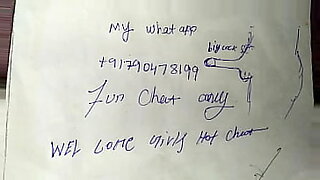 My whatapp
+917790478199
Fun Chat only
WEL COME Girls Hot Chat